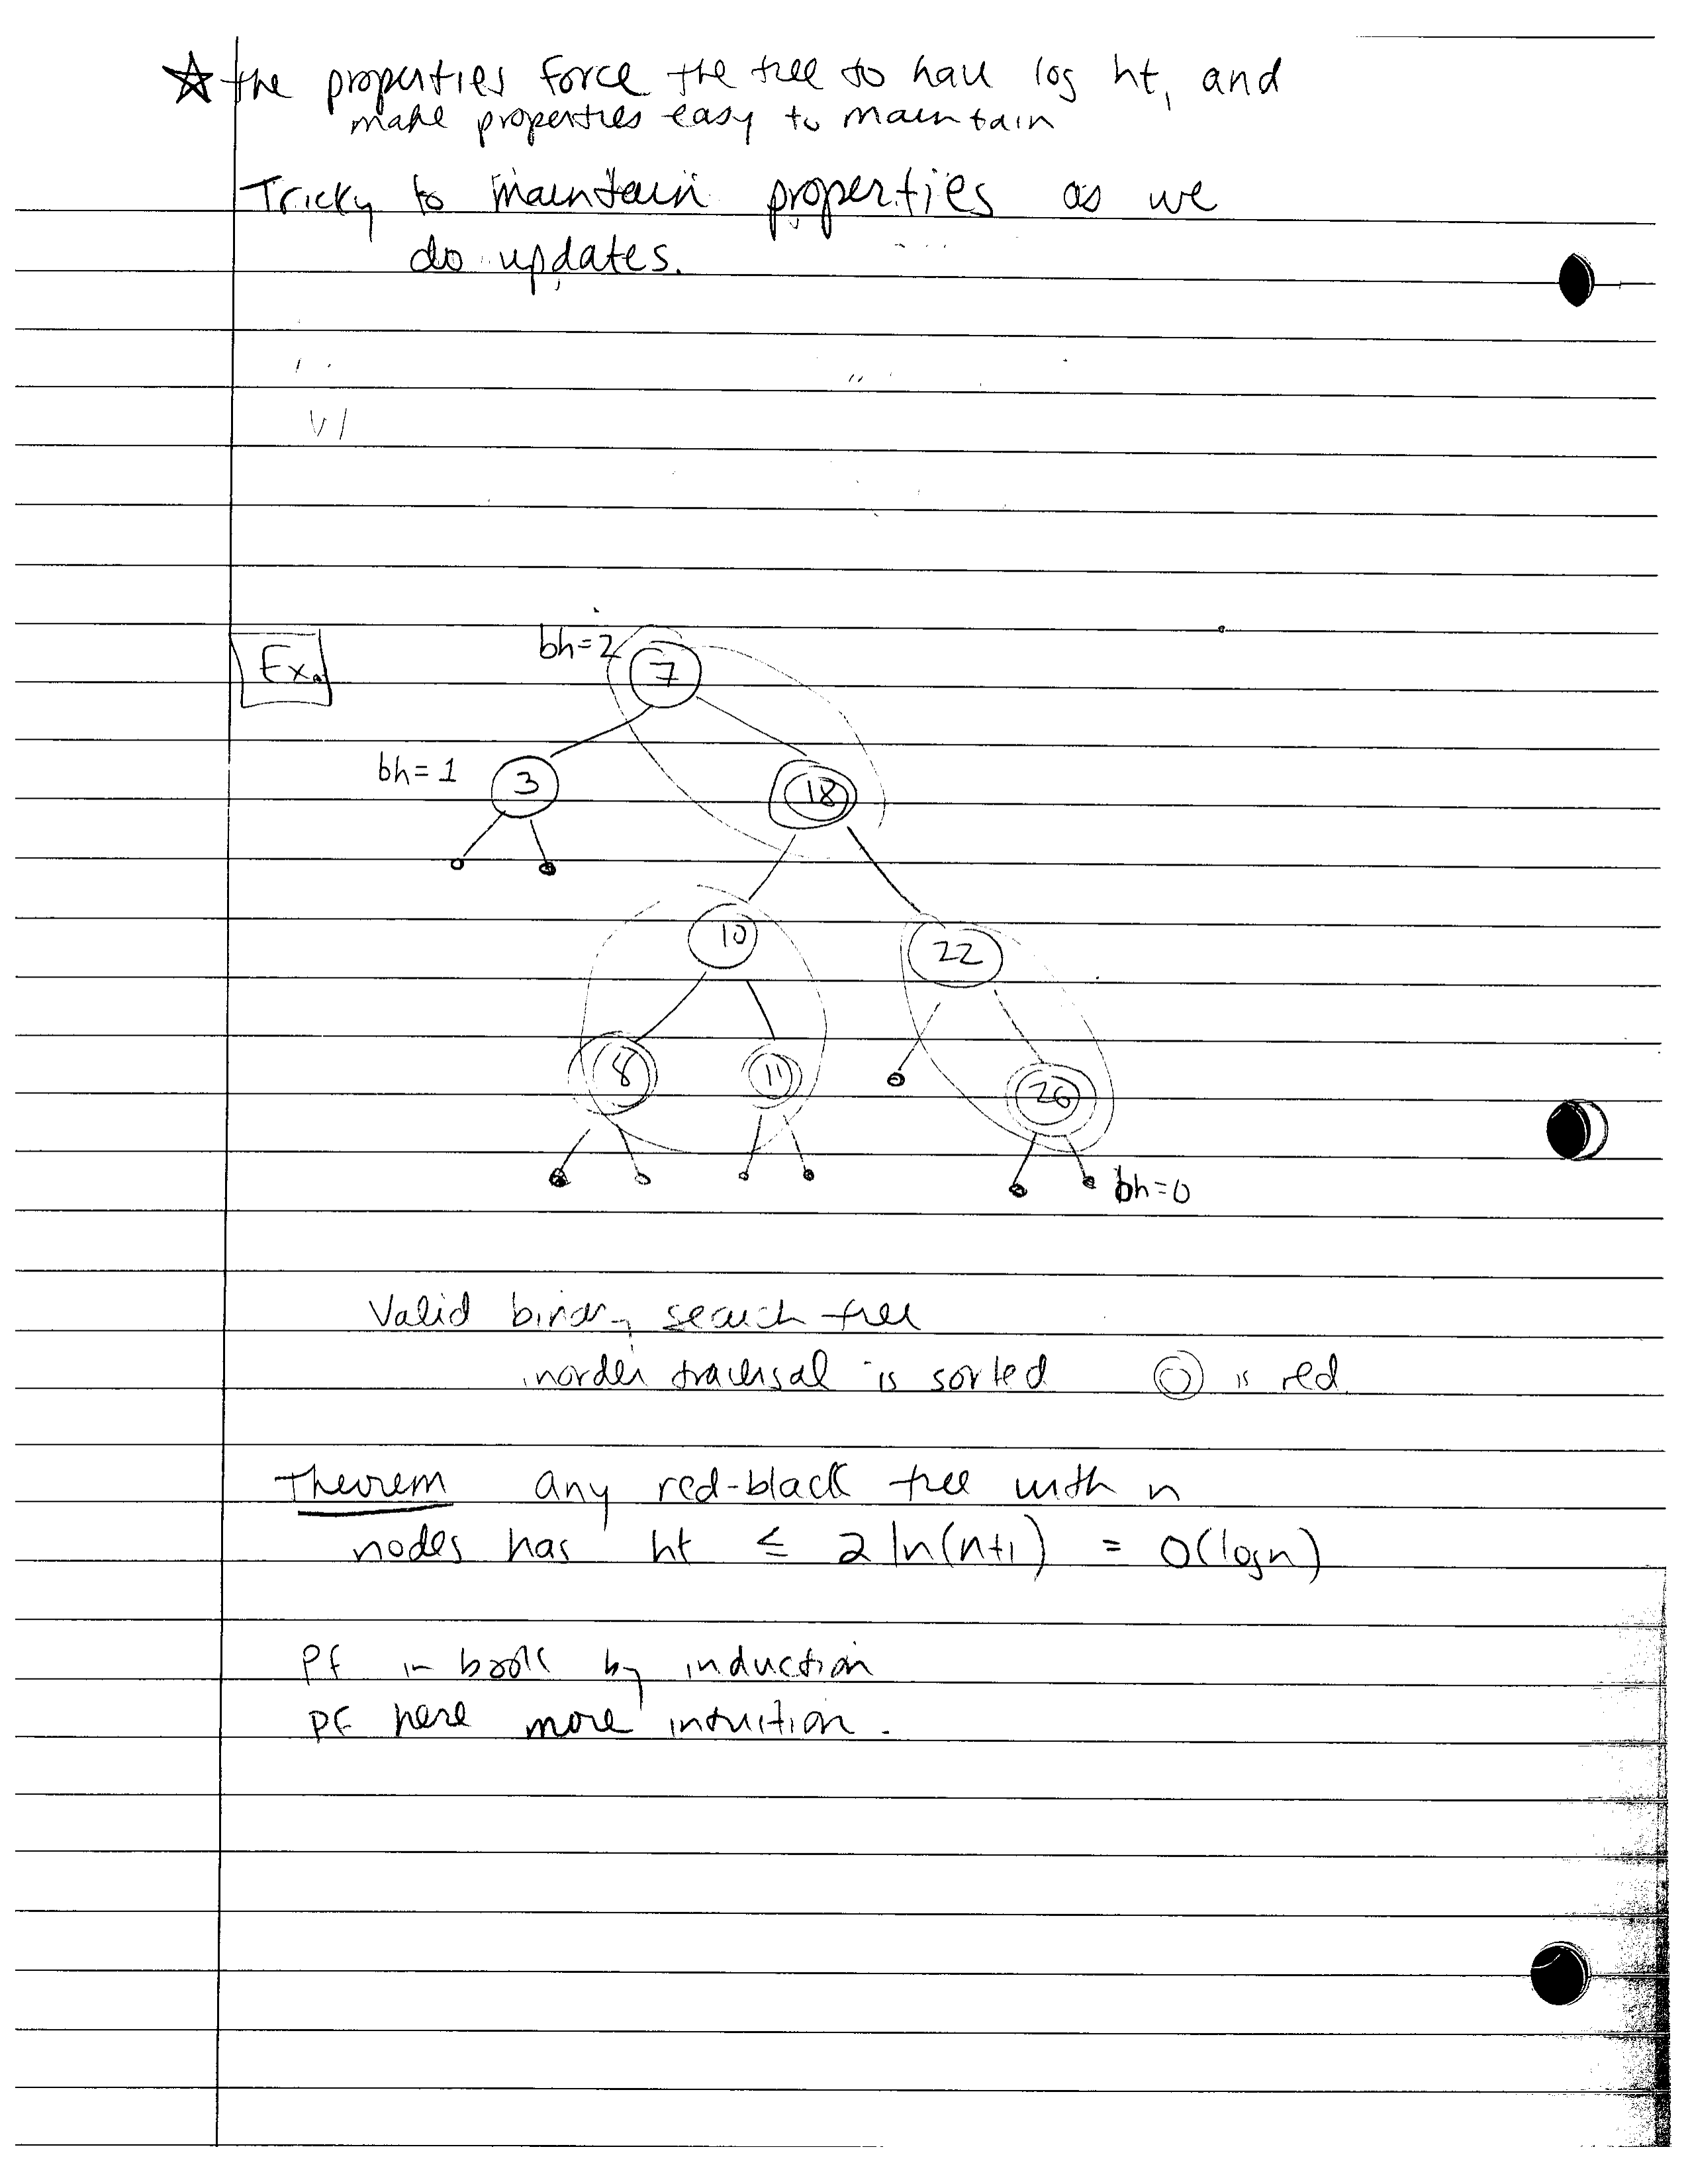 ☆ the properties force the tree to have log ht, and
make properties easy to maintain
Tricky to maintain properties as we
do updates.
Ex.
bh=2
7
bh=1
3
18
10
22
8
11
26
bh=0
Valid binary search tree
inorder traversal is sorted ◎ is red
Theorem any red-black tree with n
nodes has ht ≤ 2 ln(n+1) = O(log n)
Pf in book by induction
Pf here more intuition.